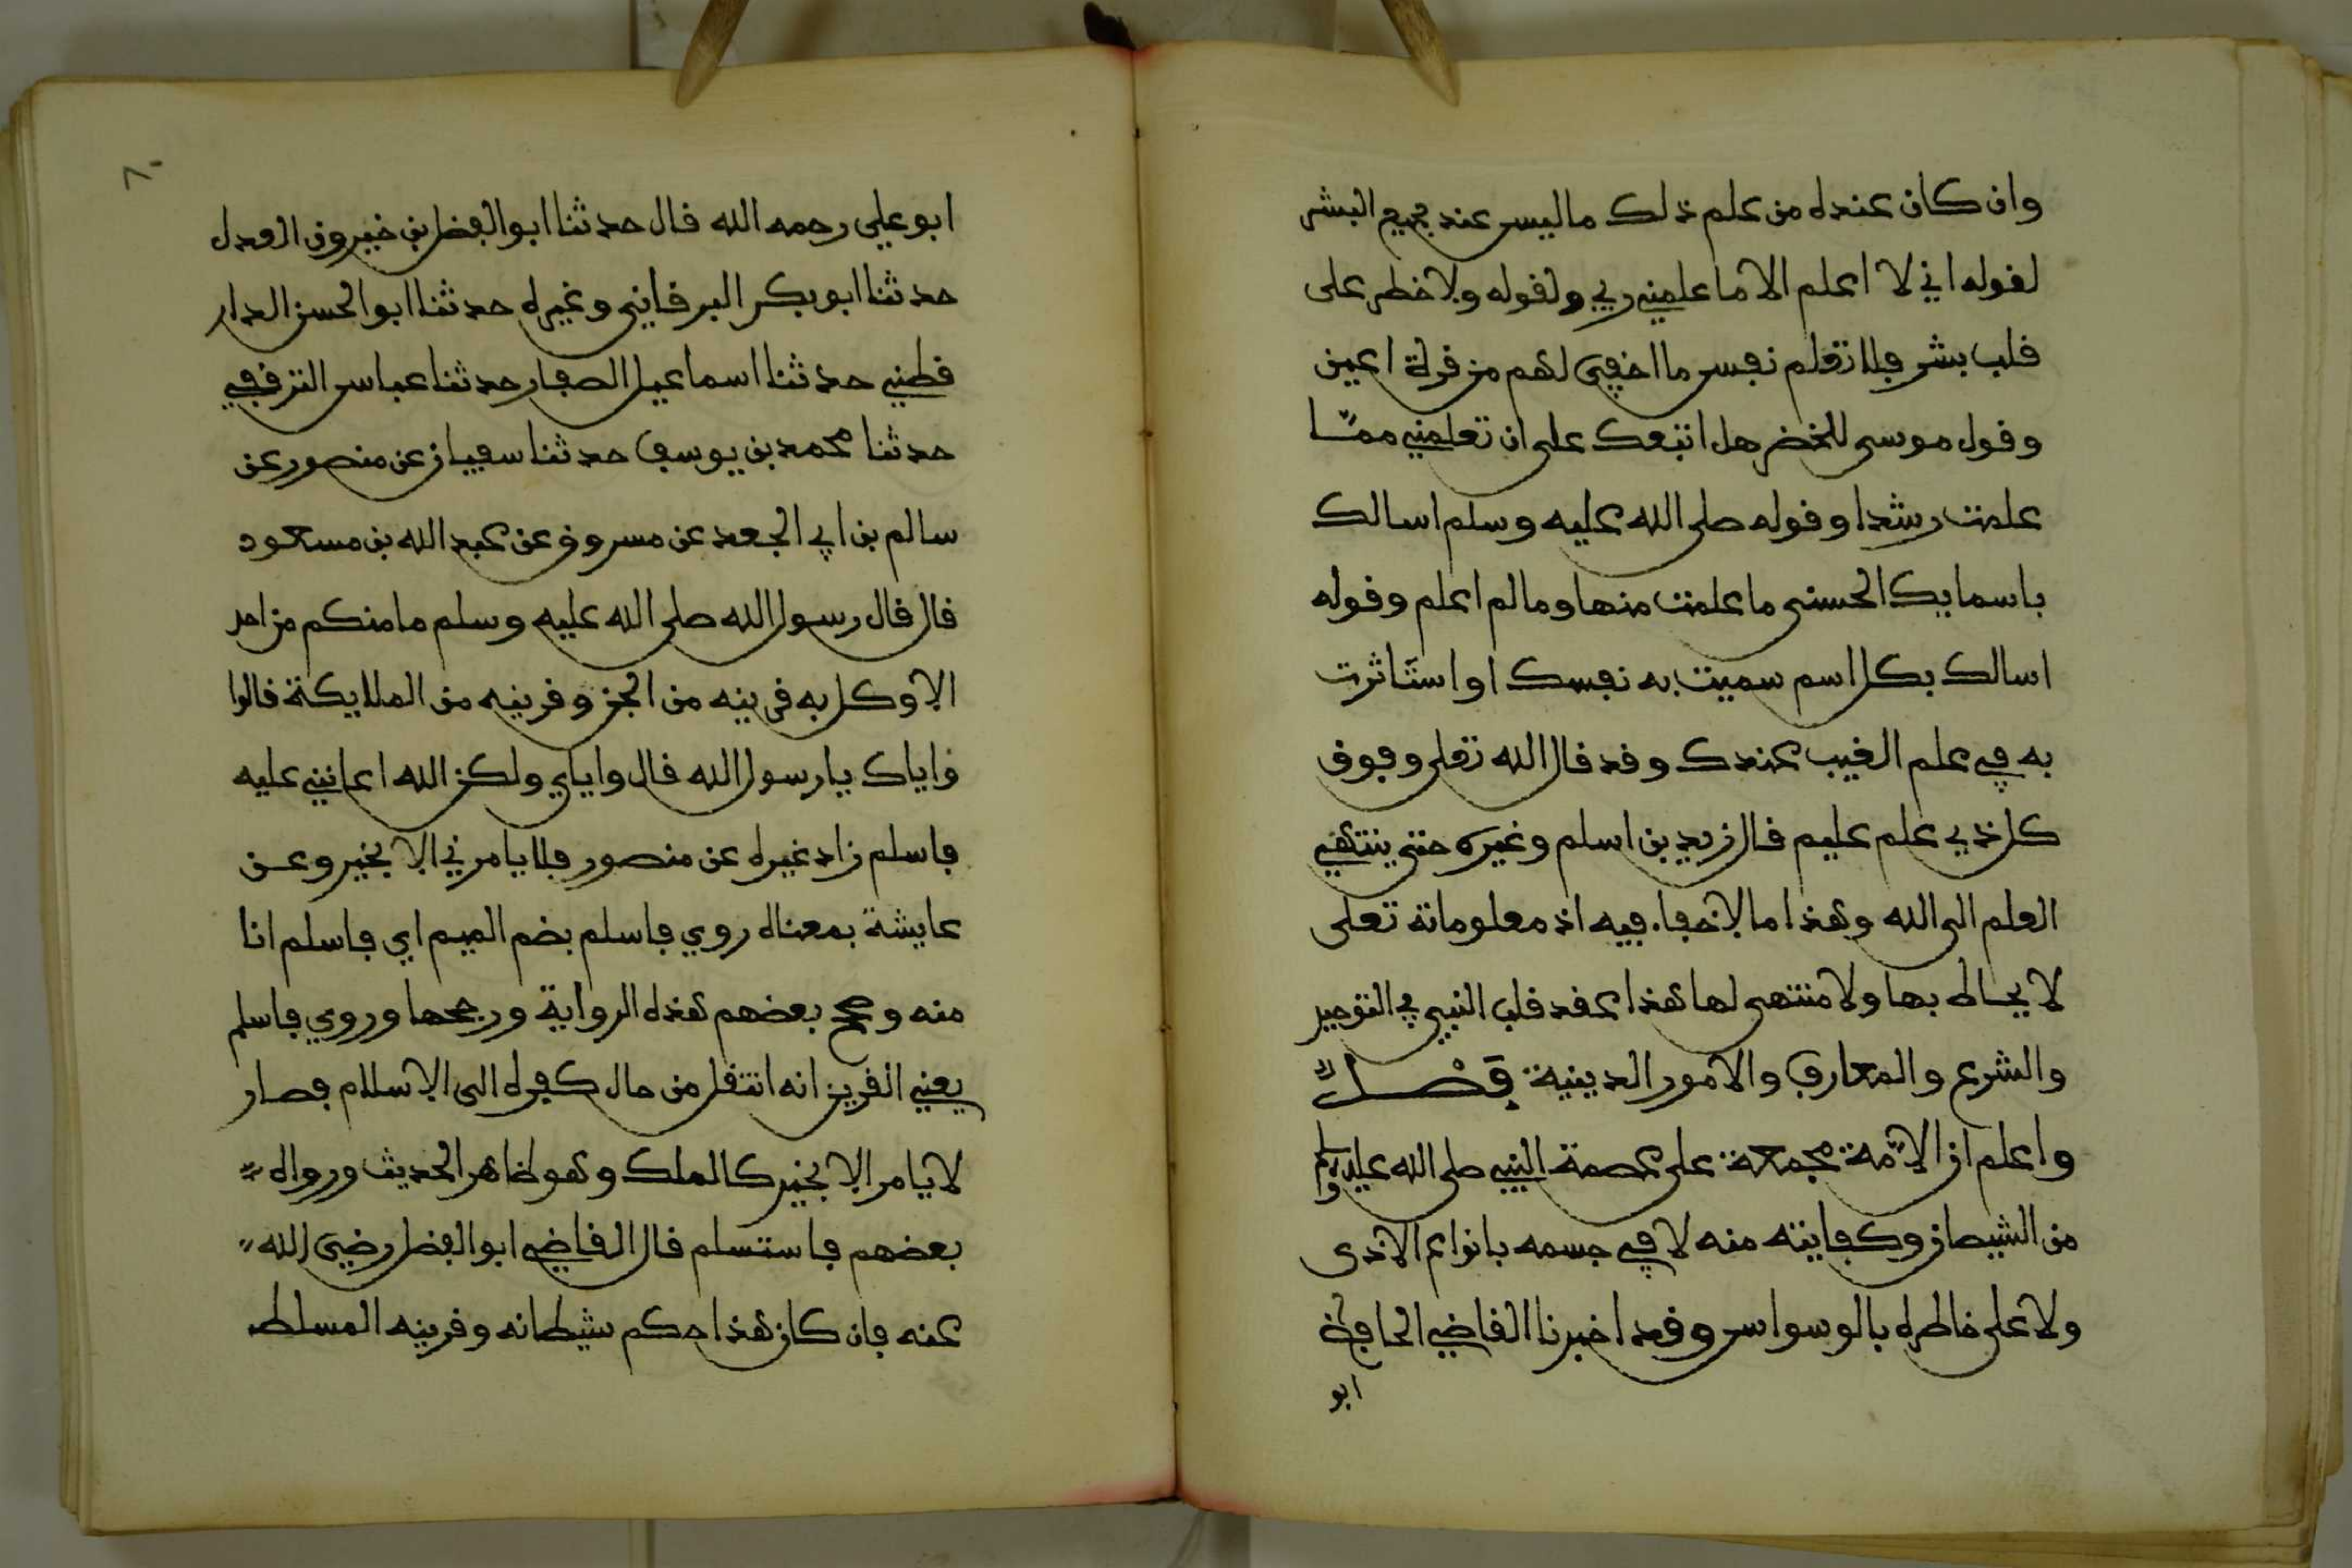 وان كان عنده من علم ذلك ما ليس عند جميع البشر
لقوله اني لا اعلم الا ما علمني ربي ولقوله ولا خطر على
قلب بشر فلا تعلم نفس ما اخفي لهم من قرة اعين
وقول موسى للخضر هل اتبعك على ان تعلمني ممّا
علمت رشدا وقوله صلى الله عليه وسلم اسالك
باسمايك الحسنى ما علمت منها وما لم اعلم وقوله
اسالك بكل اسم سميت به نفسك او استاثرت
به في علم الغيب عندك وقد قال الله تعلى وفوق
كل ذي علم عليم قال زيد بن اسلم وغيره حتى ينتهي
العلم الى الله وهذا ما لا خفاء فيه اذ معلوماته تعلى
لا يحاط بها ولا منتهى لها هذا عقد قلب النبي في التوحيد
والشرع والمعارف والامور الدينية فَصْل
واعلم ان الامّة مجمعة على عصمة النبي صلى الله عليه وسلم
من الشيطان وكفايته منه لا في جسمه بانواع الاذى
ولا على خاطره بالوسواس وقد اخبرنا القاضي الحافظ
ابو
٨٠
ابو علي رحمه الله قال حدثنا ابو الفضل بن خيرون العدل
حدثنا ابو بكر البرقاني وغيره حدثنا ابو الحسن الدار
قطني حدثنا اسماعيل الصفار حدثنا عباس الترقفي
حدثنا محمد بن يوسف حدثنا سفيان عن منصور عن
سالم بن ابي الجعد عن مسروق عن عبد الله بن مسعود
قال قال رسول الله صلى الله عليه وسلم ما منكم من احد
الا وكل به قرينه من الجن وقرينه من الملايكة قالوا
واياك يا رسول الله قال واياي ولكن الله اعانني عليه
فاسلم زاد غيره عن منصور فلا يامرني الا بخير وعن
عايشة بمعناه روي فاسلم بضم الميم اي فاسلم انا
منه وصحح بعضهم هذه الرواية ورجحها وروي فاسلم
يعني القرين انه انتقل من حال كفره الى الاسلام فصار
لا يامر الا بخير كالملك وهو ظاهر الحديث ورواه
بعضهم فاستسلم قال القاضي ابو الفضل رضي الله
عنه فان كان هذا حكم شيطانه وقرينه المسلط